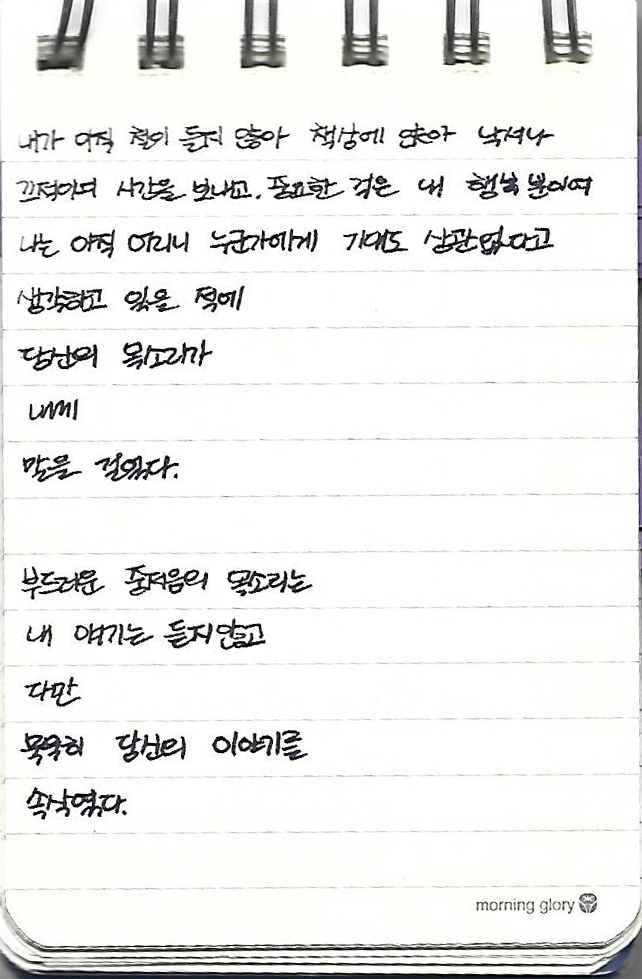 내가 아직 철이 들지 않아 책상에 앉아 낙서나
끄적이며 시간을 보내고, 필요한 것은 내 행복 뿐이며
나는 아직 어리니 누군가에게 기대도 상관없다고
생각하고 있을 적에
당신의 목소리가
내게
말을 걸었다.
부드러운 중저음의 목소리는
내 얘기는 듣지않고
다만
묵묵히 당신의 이야기를
속삭였다.
morning glory